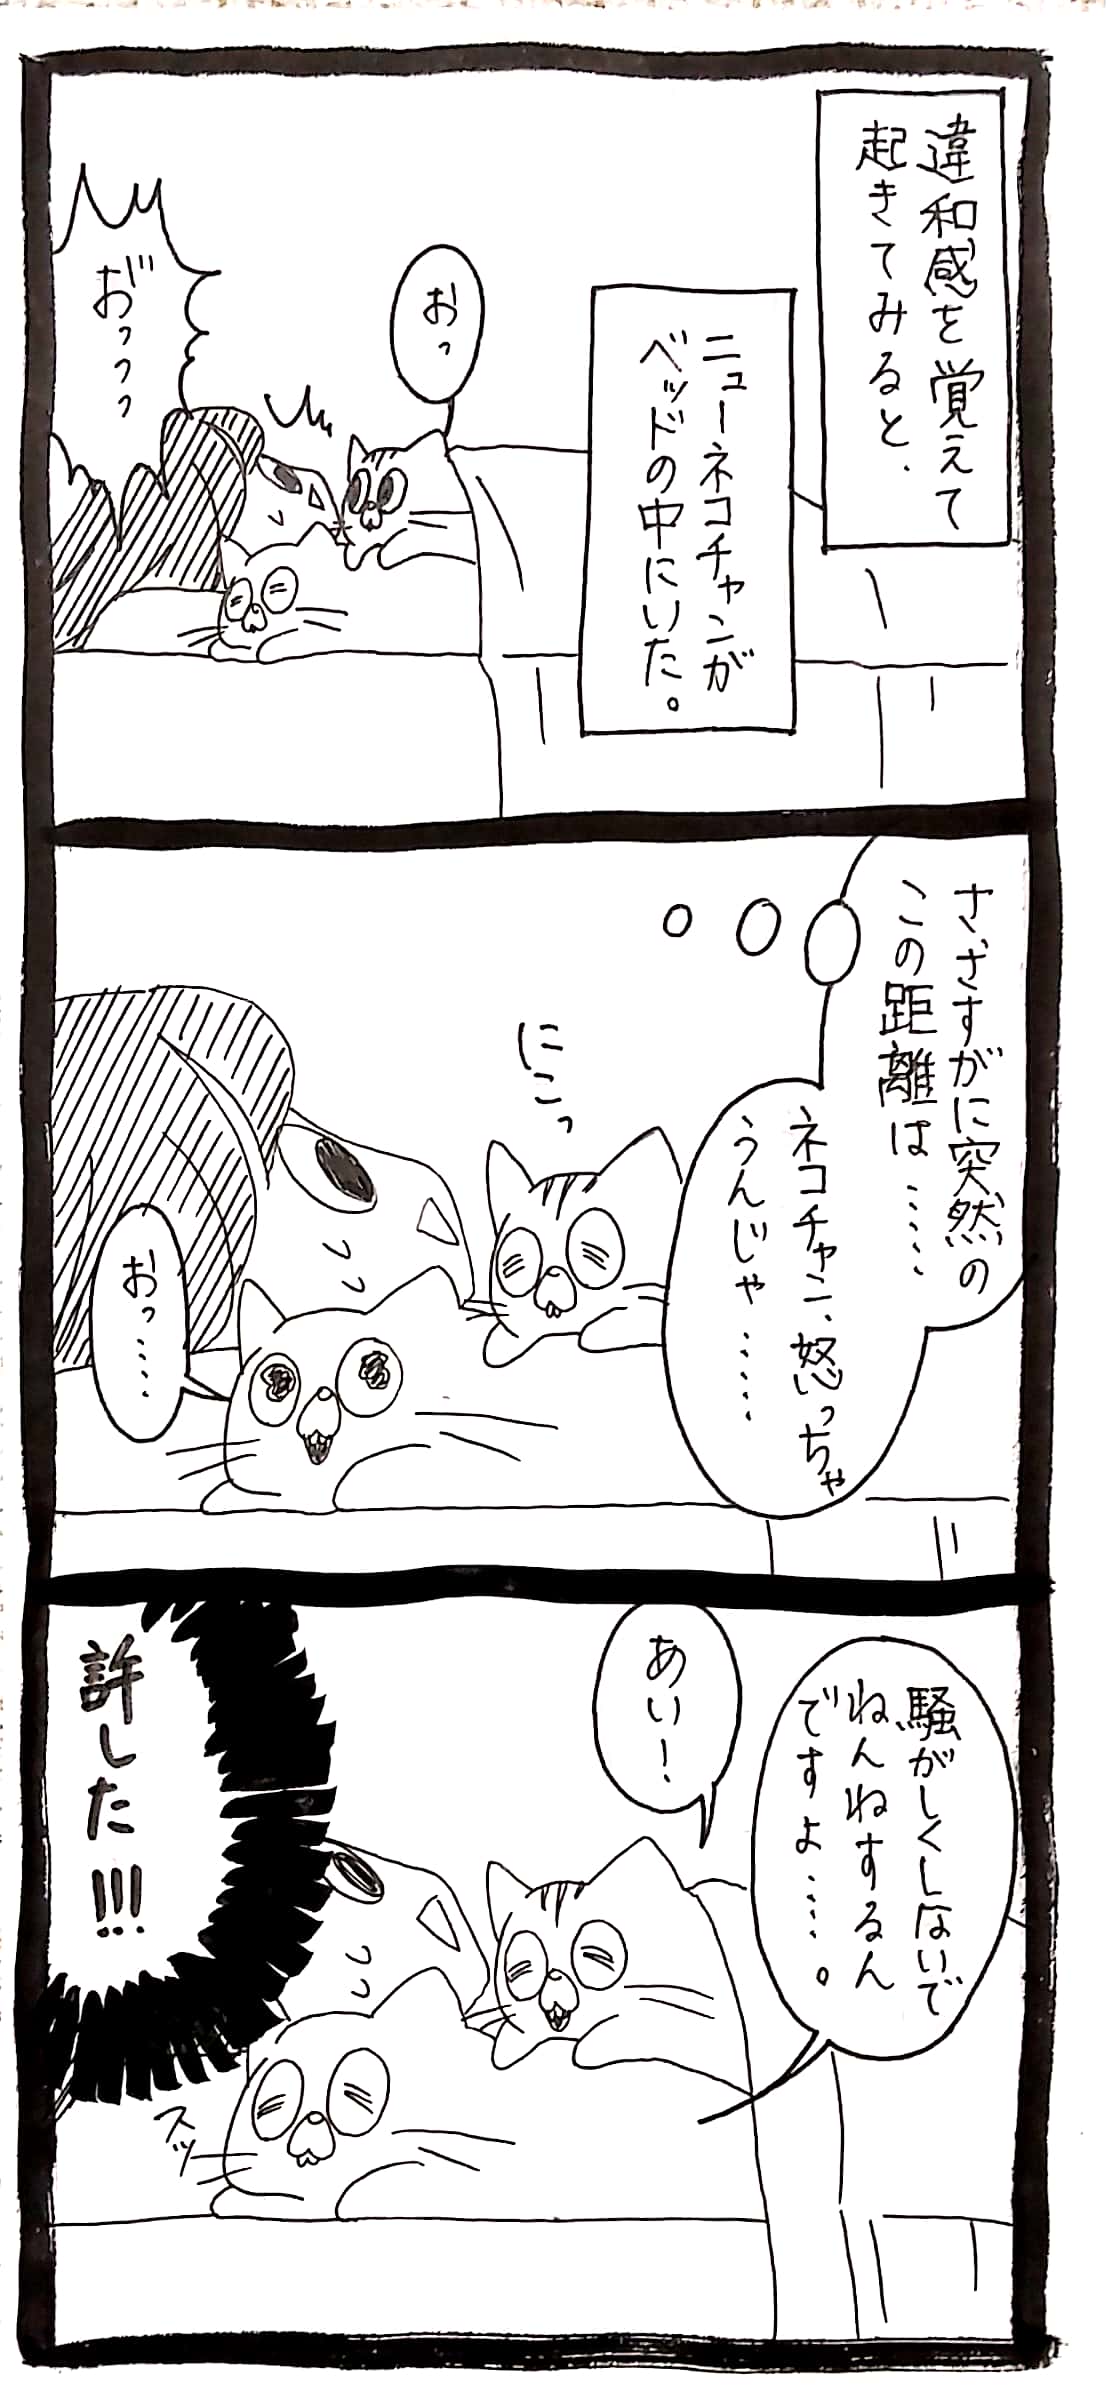 違和感を覚えて
起きてみると、
ニューネコチャンが
ベッドの中にいた。
おっ
お゛っっっ
さ、さすがに突然の
この距離は……
ネコチャン、怒っちゃ
うんじゃ……
にこっ
おっ……
騒がしくしないで
ねんねするん
ですよ……。
あい！
許した!!!
スッ